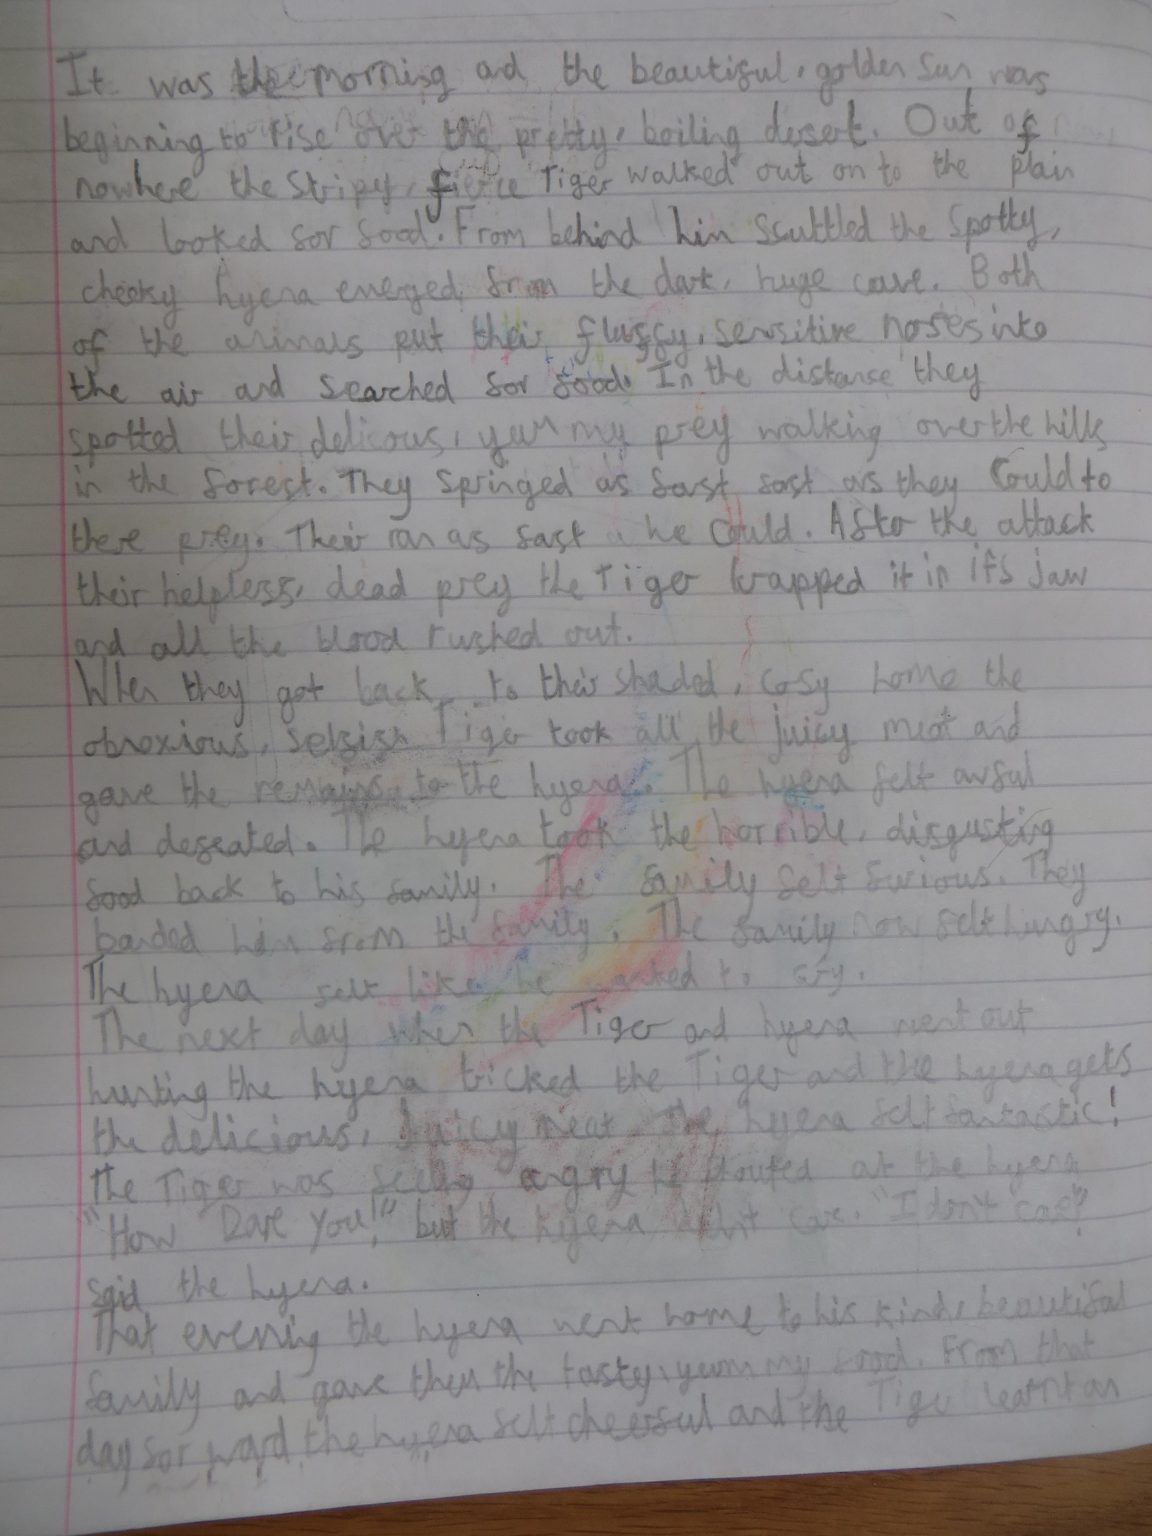 It was the morning and the beautiful, golden sun was
beginning to rise over the pretty, boiling desert. Out of
nowhere the stripy, fierce Tiger walked out on to the plain
and looked for food. From behind him scuttled the spotty,
cheeky hyena emerged from the dark, huge cave. Both
of the animals put their fluffy, sensitive noses into
the air and searched for food. In the distanse they
spotted their delicous, yummy prey walking over the hills
in the forest. They springed as fast fast as they could to
there prey. Their ran as fast a he could. After the attack
their helpless, dead prey the Tiger wrapped it in it's jaw
and all the blood rushed out.
When they got back to their shaded, cosy home the
obnoxious, selfish Tiger took all the juicy meat and
gave the remains to the hyena. The hyena felt awful
and defeated. The hyena took the horrible, disgusting
food back to his family. The family felt furious. They
banded him from the family. The family now felt hungry.
The hyena felt like he wanted to cry.
The next day when the Tiger and hyena went out
hunting the hyena tricked the Tiger and the hyena gets
the delicious, juicy meat. The hyena felt fantastic!
The Tiger was angry he shouted at the hyena
"How Dare You!" but the hyena didn't care. "I don't care"
said the hyena.
That evening the hyena went home to his kind, beautiful
family and gave them the tasty, yummy food. From that
day forward the hyena felt cheerful and the Tiger learnt an